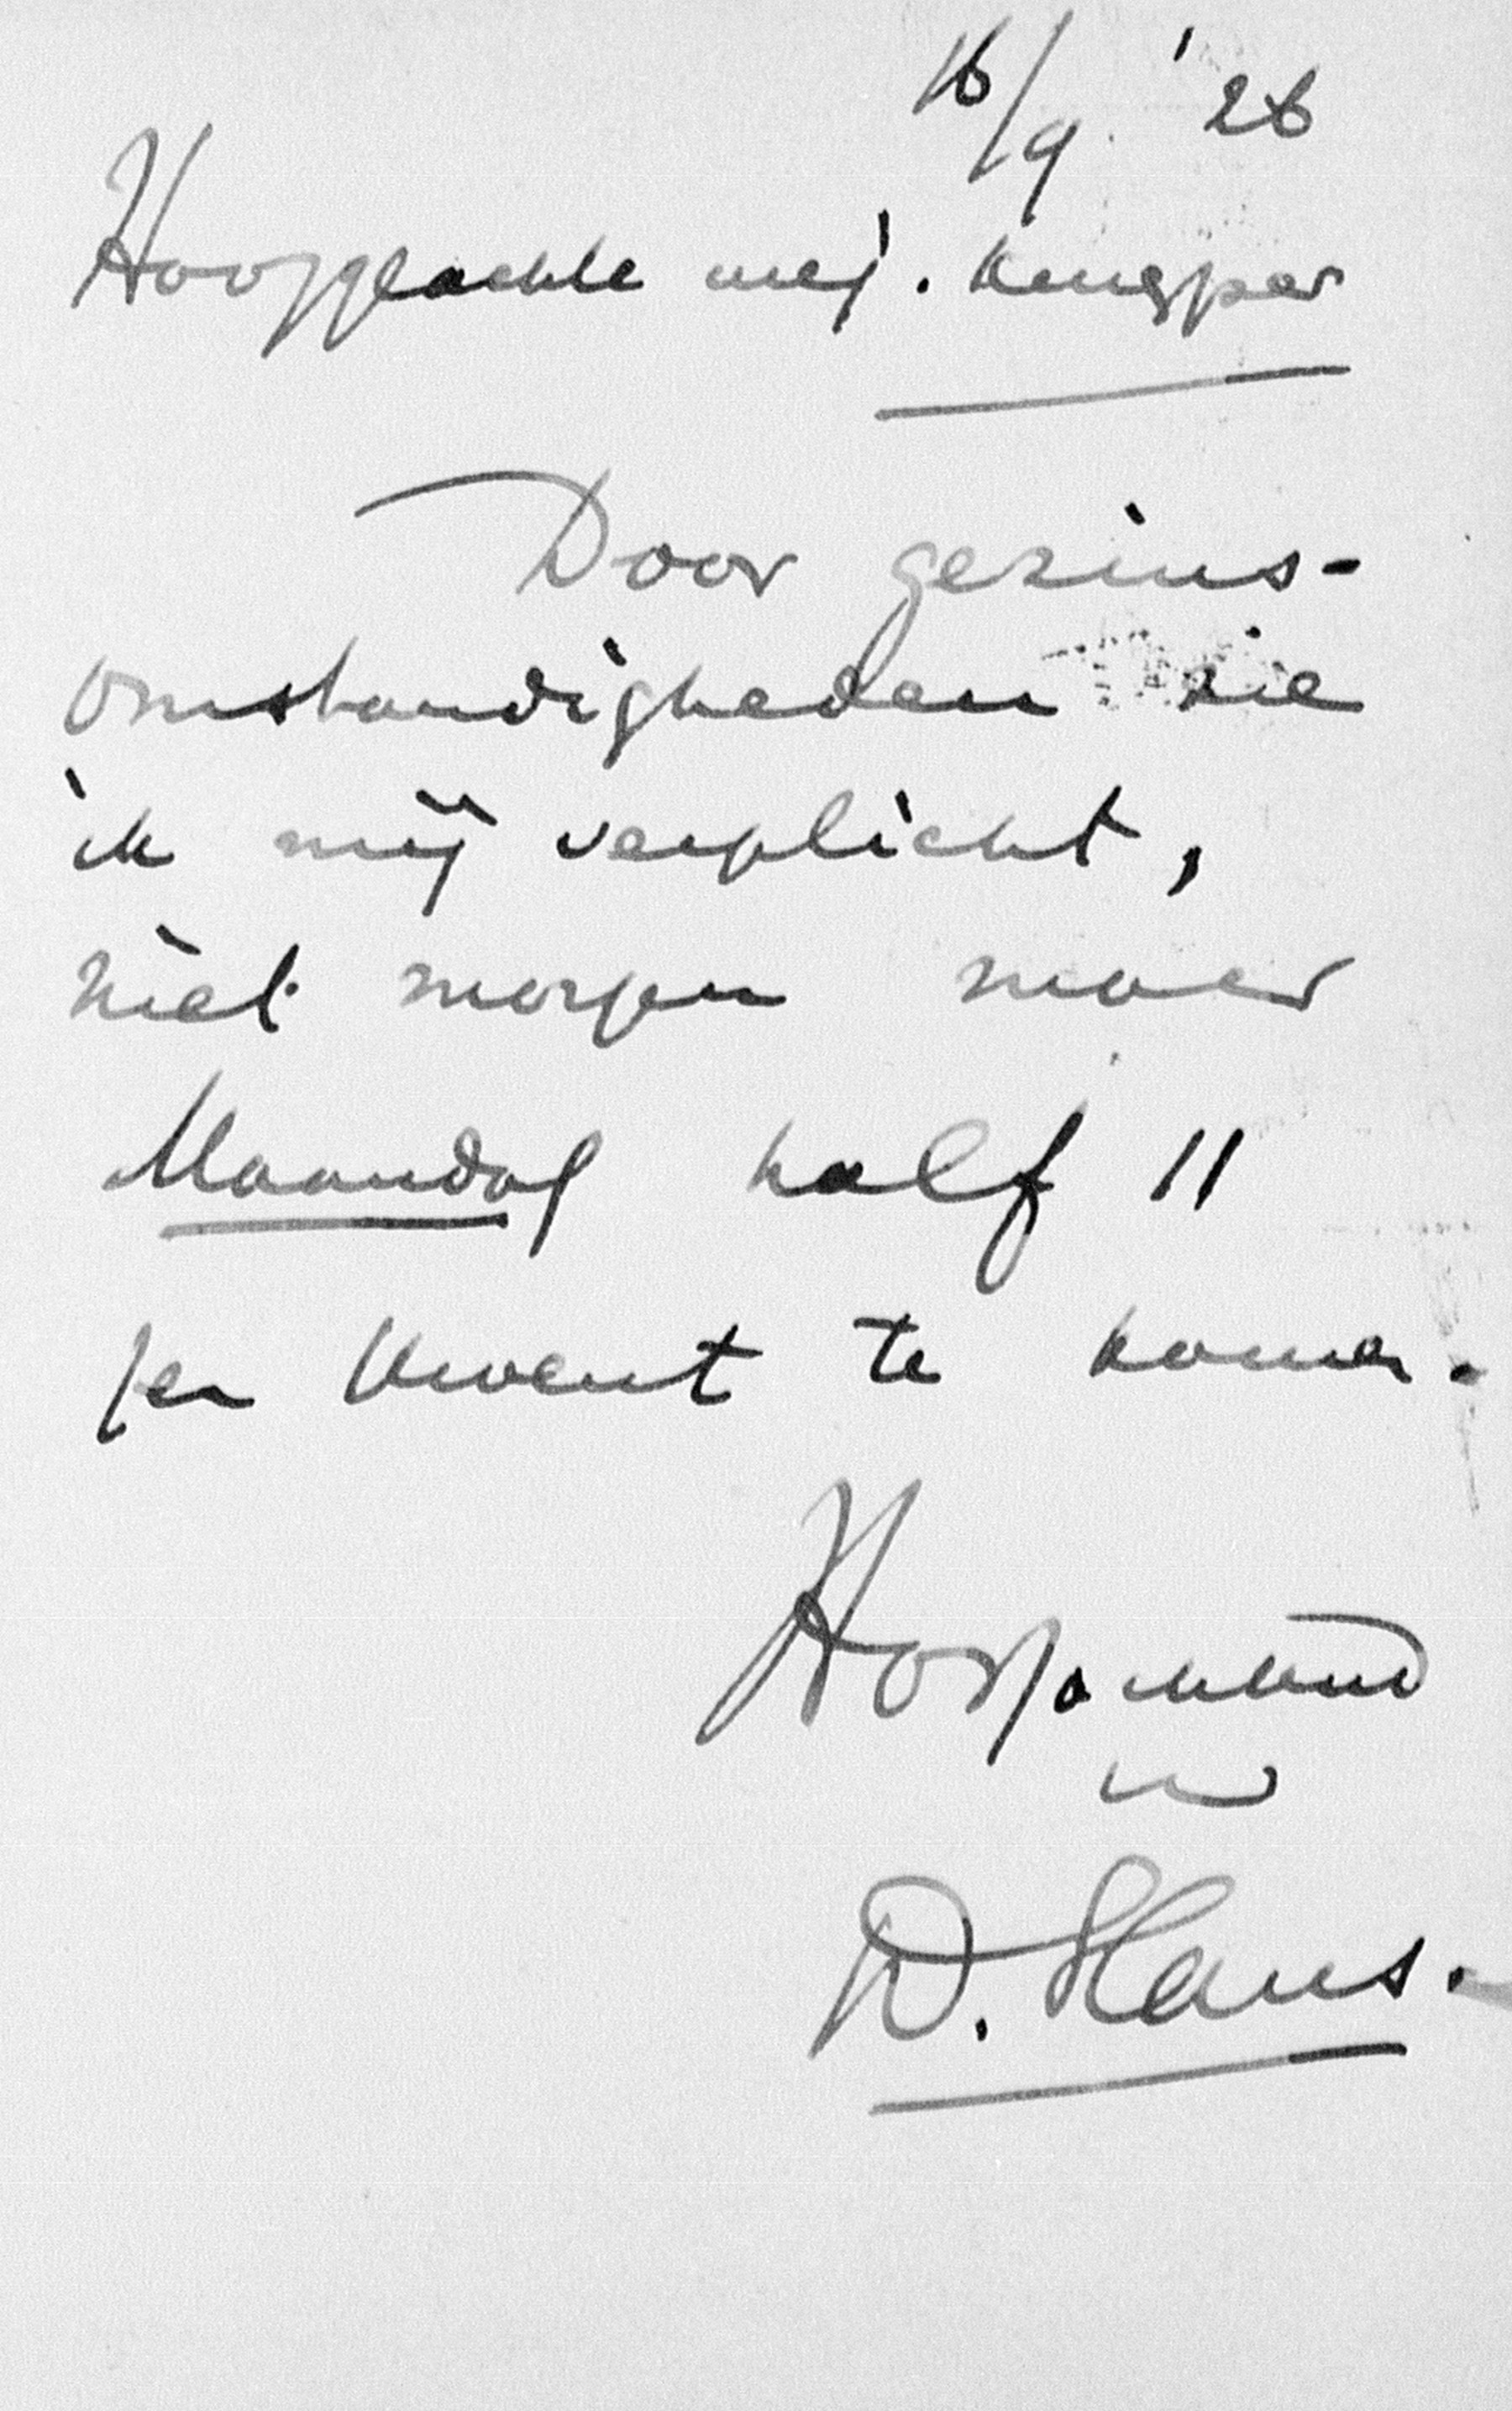 16/9 '26
Hooggeachte mej. Kuyper
Door gezins-
omstandigheden zie
ik mij verplicht,
niet morgen maar
Maandag half 11
per Uwent te komen.
Hoogachtend
uw
D. Hans.